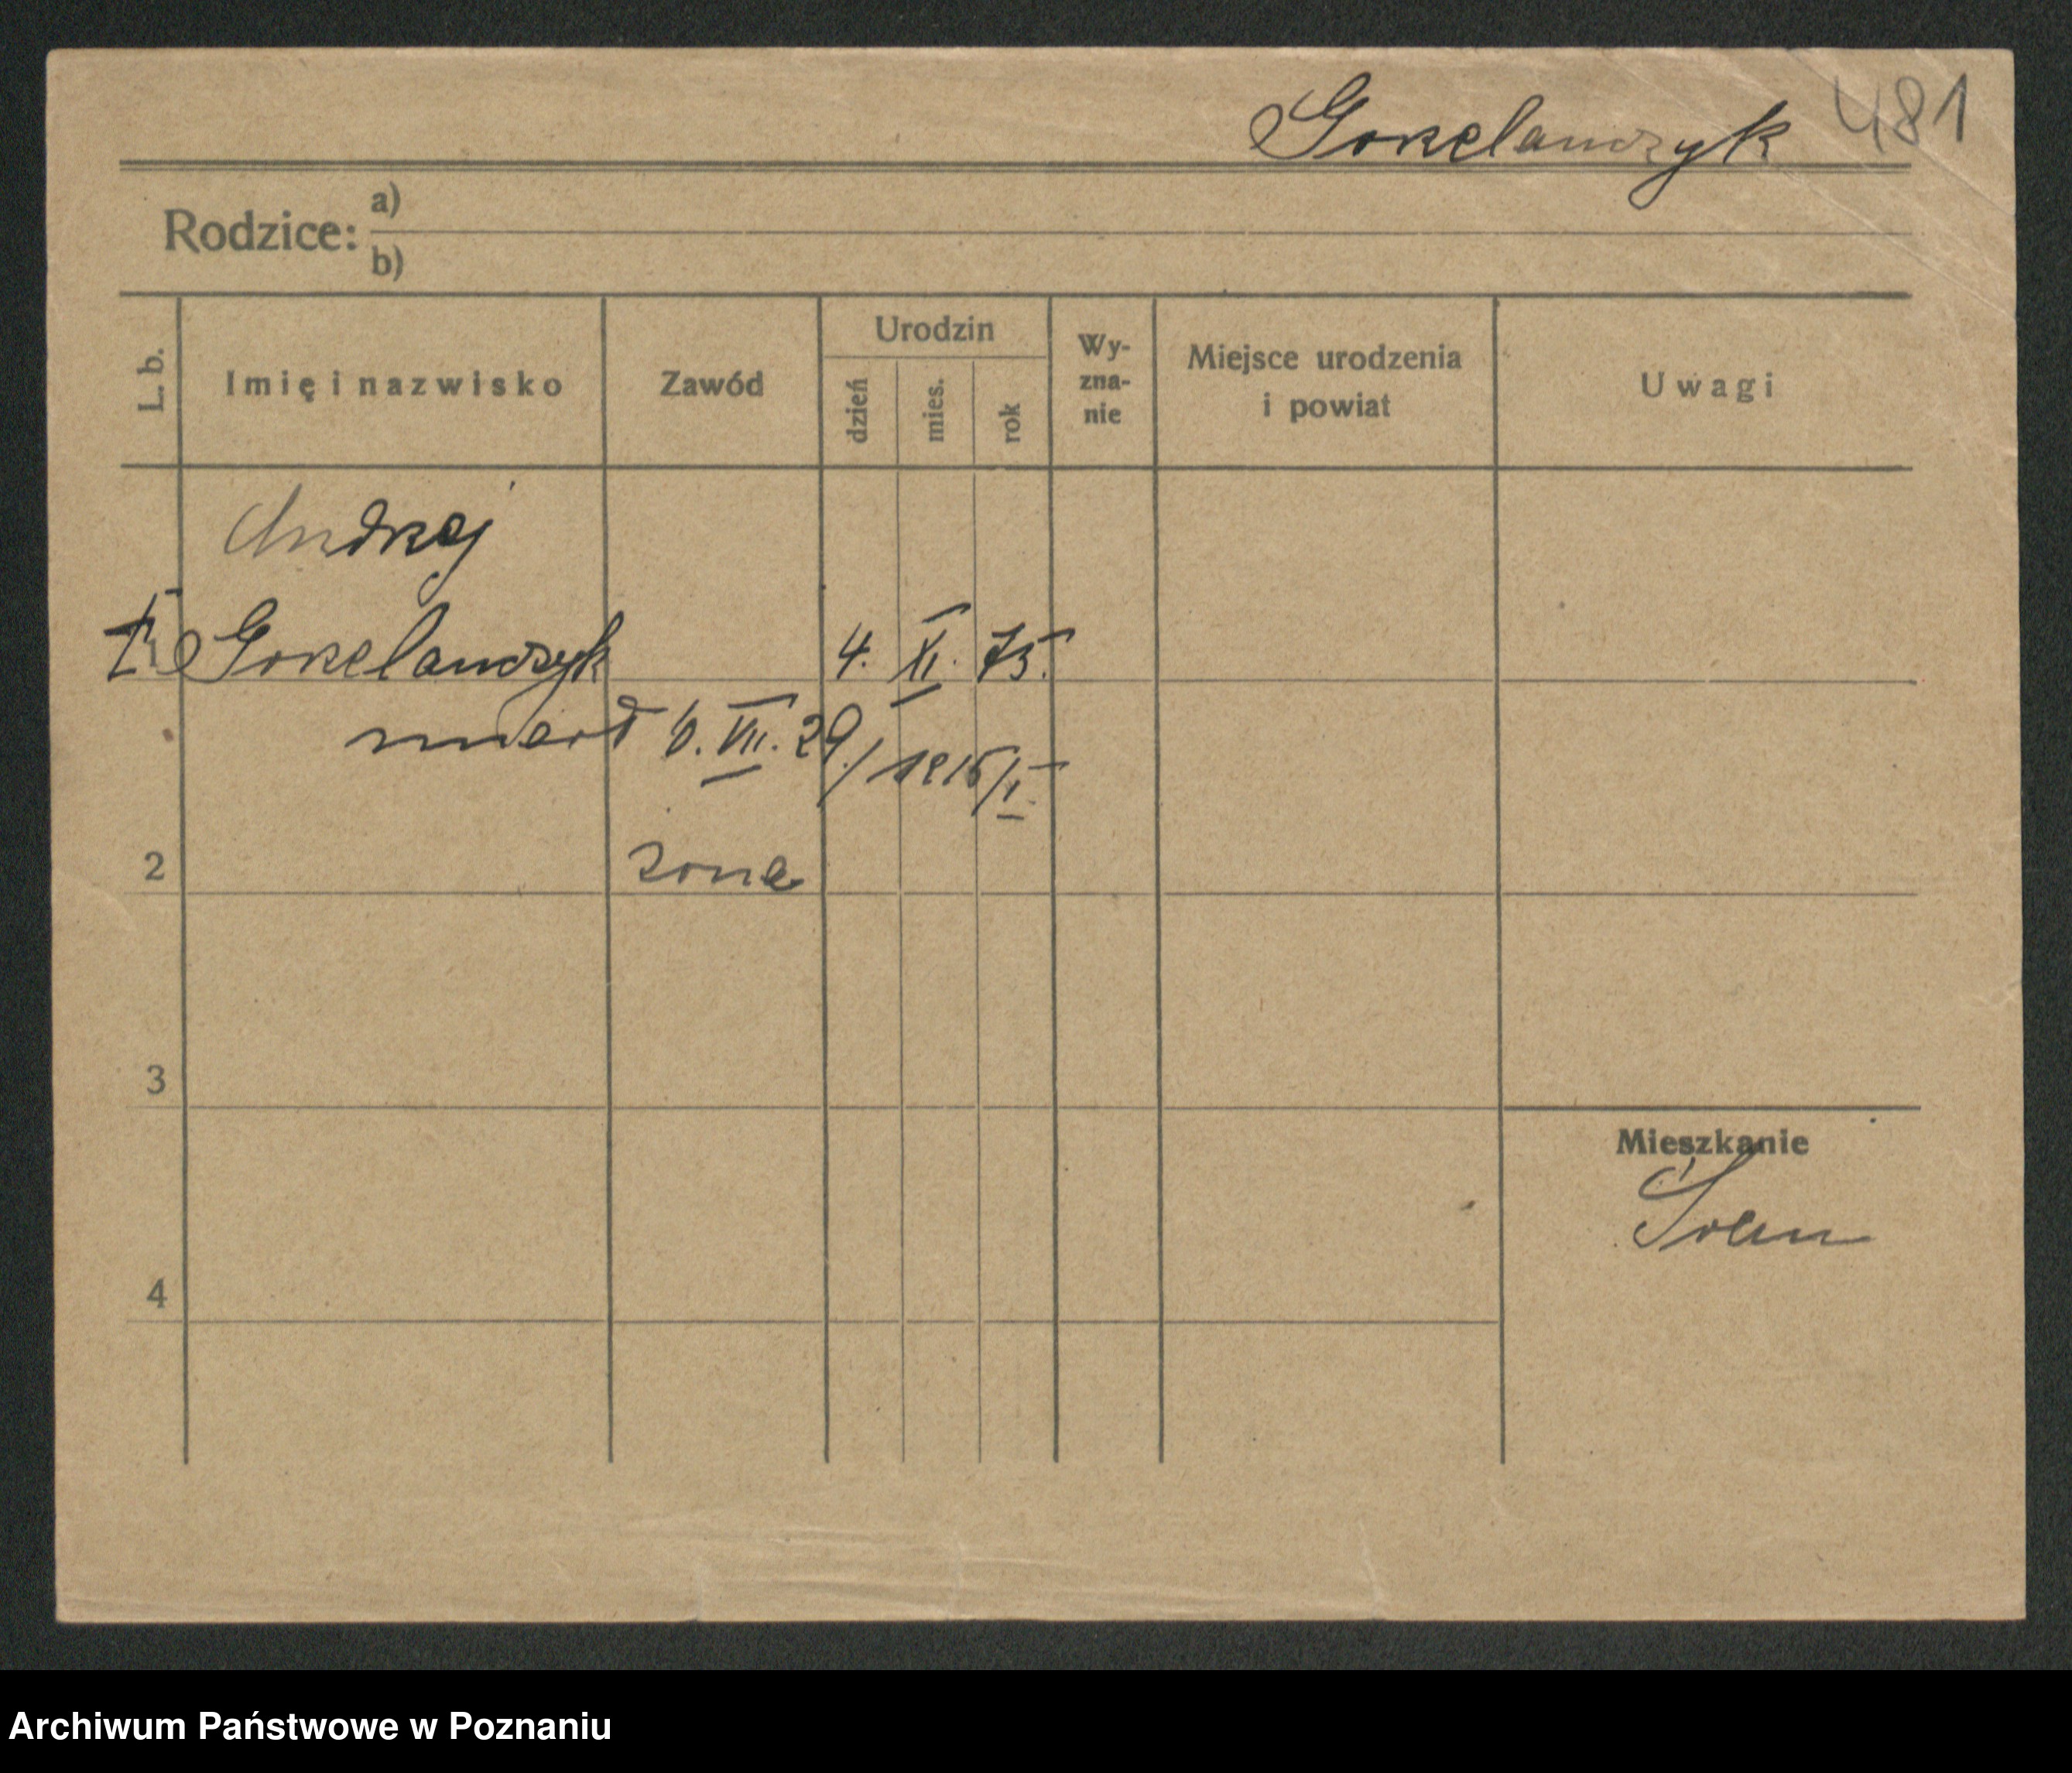 Gorzelańczyk 481
Rodzice: a)
b)
L. b.
Imię i nazwisko
Zawód
Urodzin
dzień
mies.
rok
Wy-
zna-
nie
Miejsce urodzenia
i powiat
Uwagi
Andrzej
† 1 Gorzelanczyk 4. XI. 75.
zmarł 6. VII. 29./
2 żona
3
4
Mieszkanie
Śrem
Archiwum Państwowe w Poznaniu